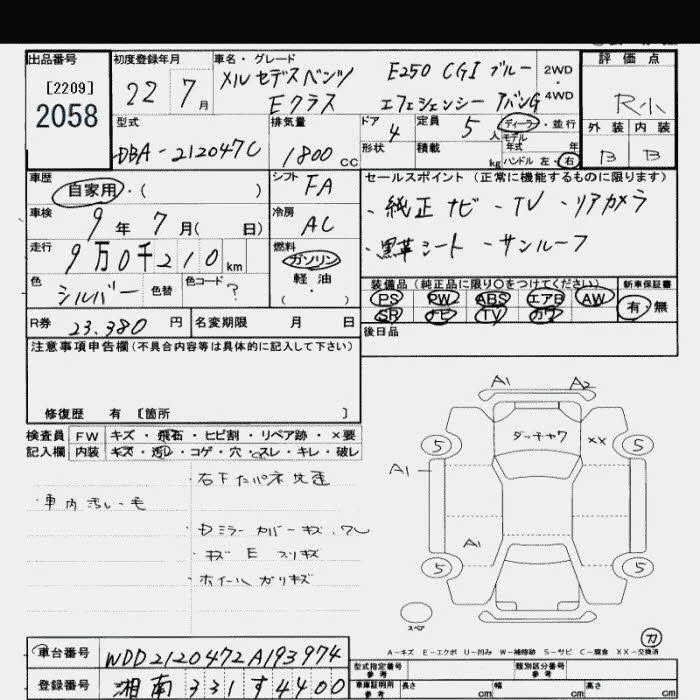 出品番号 初度登録年月 車名・グレード 評価点
[2209]
2058
22 7月
メルセデスベンツ E250 CGI ブルー 2WD
Eクラス エフェシェンシー アバンG 4WD
R小
型式 排気量 ドア 定員 ディーラー・並行
DBA-212047C 1800 cc 4 5人
モデル年式 年
形状 積載 kg ハンドル 左・右
外装 内装
B B
車歴 シフト セールスポイント (正常に機能するものに限ります)
自家用・( ) FA
・純正ナビ -TV -リアカメラ
車検 冷房
9年7月( 日) AC
・黒革シート -サンルーフ
走行 燃料
9万0千210km ガソリン
軽油
( )
色 色替 色コード
シルバー ?
装備品 (純正品に限り○をつけてください) 新車保証書
PS PW ABS エアB AW 有・無
SR ナビ TV カワ
R券 23.380円 名変期限 月 日
後日品
注意事項申告欄(不具合内容等は具体的に記入して下さい)
修復歴 有 [箇所 ]
検査員 FW キズ・飛石・ヒビ割・リペア跡・×要
記入欄 内装 キズ・汚レ・コゲ・穴・スレ・キレ・破レ
・右下
・車内汚レ・毛
・Dミラーカバーキズ.ワレ
・キズ E スリキズ
・ホイールガリキズ
A1 A2
5 ××  5
A1
A1
5 5
スペア
A-キズ E-エクボ U-凹み W-補修跡 S-サビ C-腐食 XX-交換済
車台番号 WDD2120472A193974
登録番号 湘南 331 す 4400
型式指定番号 参考 類別区分番号 参考
車庫証明用 参考 長さ cm 幅 cm 高さ cm